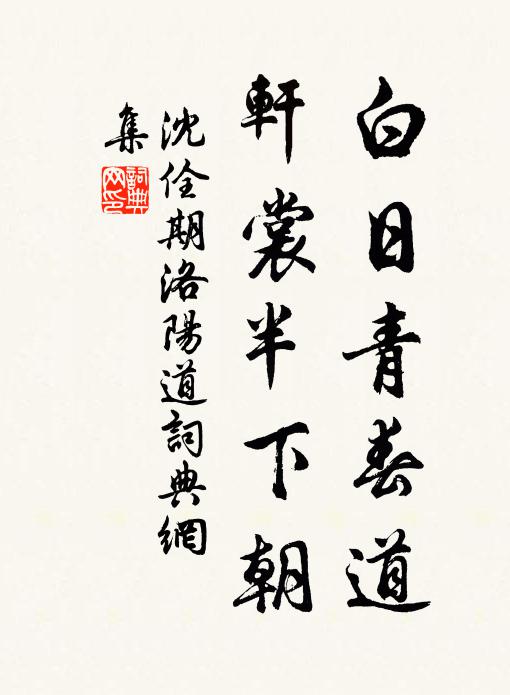 白日青春道
軒裳半下朝
沈佺期洛陽道詞典網
集
詞典
網印